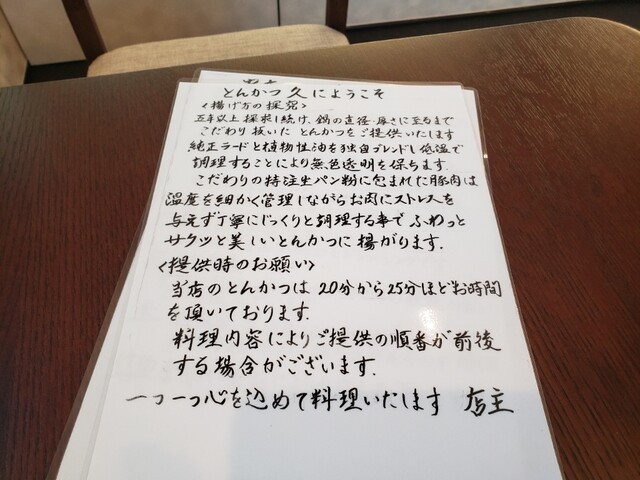 とんかつ 久 にようこそ
<揚げ方の探究>
五年以上 探求し続け、鍋の直径・厚さに至るまで
こだわり抜いた とんかつをご提供いたします
純正ラードと植物性油を独自ブレンドし低温で
調理することにより無色透明を保ちます.
こだわりの特注生パン粉に包まれた豚肉は
温度を細かく管理しながらお肉にストレスを
与えず丁寧にじっくりと調理する事で ふわっと
サクッと美しいとんかつに 揚がります.
<提供時のお願い>
当店のとんかつは 20分から25分ほどお時間
を頂いております.
料理内容によりご提供の順番が前後
する場合がございます.
一つ一つ心を込めて料理いたします 店主